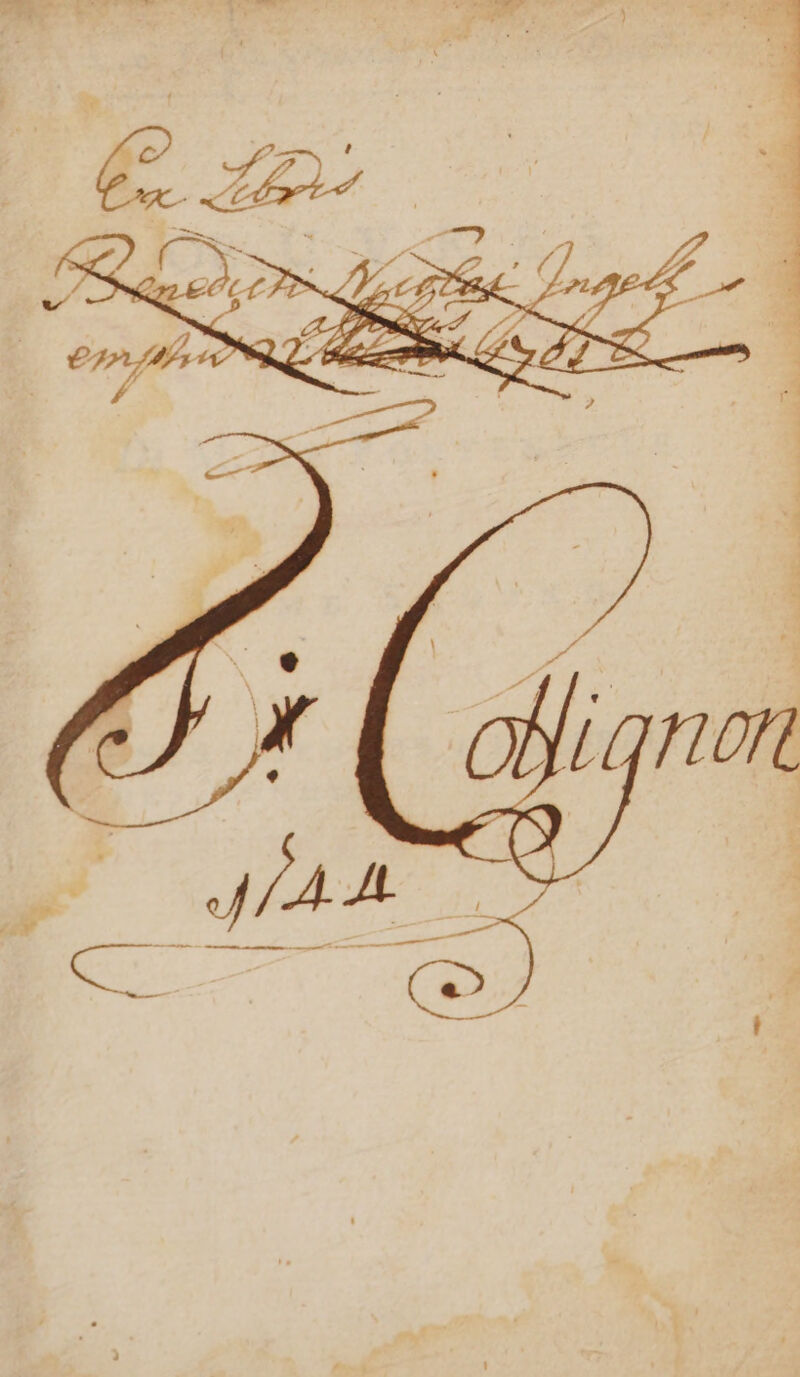 Ex Libris
Benedicti Nicolai Ingels
assibus
emptus 22 1701
F: Collignon
1744